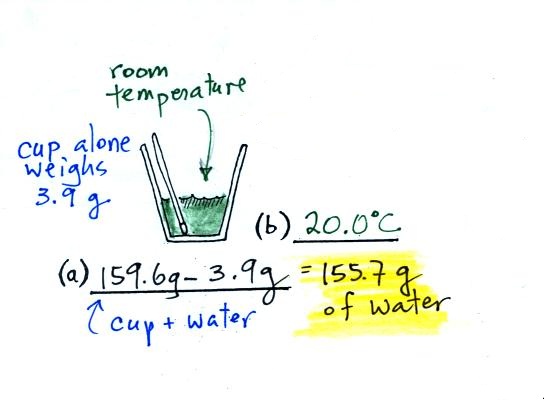 room
temperature
cup alone
weighs
3.9 g
(b) 20.0°C
(a) 159.6g - 3.9g = 155.7 g
of water
cup + water